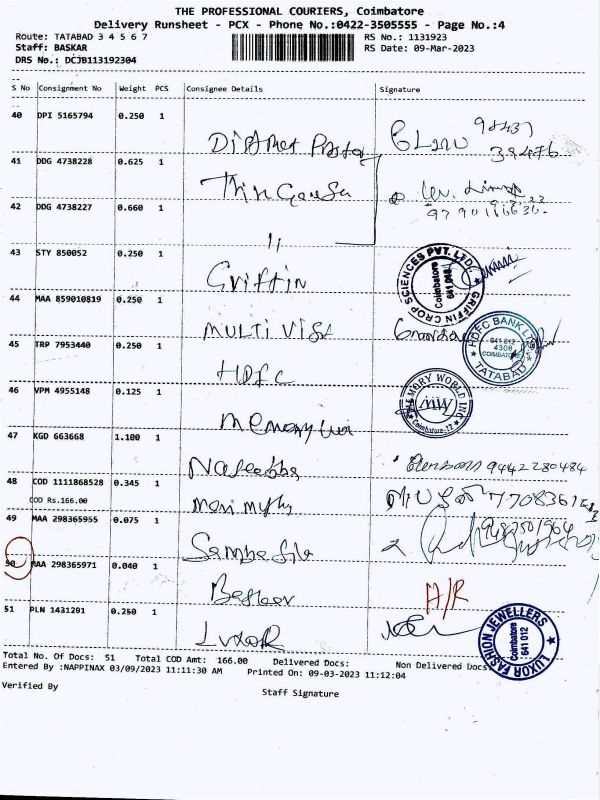 THE PROFESSIONAL COURIERS, Coimbatore
Delivery Runsheet - PCX - Phone No.:0422-3505555 - Page No.:4
Route: TATABAD 3 4 5 6 7 RS No.: 1131923
Staff: BASKAR RS Date: 09-Mar-2023
DRS No.: DCJB113192304
S No Consignment No Weight PCS Consignee Details Signature
40 DPI 5165794 0.250 1
41 DDG 4738228 0.625 1
42 DDG 4738227 0.660 1 "
43 STY 850052 0.250 1 Griffin
GRIFFIN CROP SCIENCES PVT. LTD. Coimbatore
44 MAA 859010819 0.250 1 MULTI VISA
45 TRP 7953440 0.250 1 HDFC
HDFC BANK LTD 641 012 4308 COIMBATORE TATABAD
46 VPM 4955148 0.125 1 Memory
MEMORY WORLD INC Coimbatore-12
47 KGD 663668 1.100 1 9442280484
48 COD 1111868528 0.345 1
COD Rs.166.00
49 MAA 298365955 0.075 1
50 MAA 298365971 0.040 1 A/R
51 PLN 1431201 0.250 1 LUXOR
LUXOR FASHION JEWELLERS Coimbatore 641 012
Total No. Of Docs: 51 Total COD Amt: 166.00 Delivered Docs: Non Delivered Docs:
Entered By :NAPPINAX 03/09/2023 11:11:30 AM Printed On: 09-03-2023 11:12:04
Verified By Staff Signature